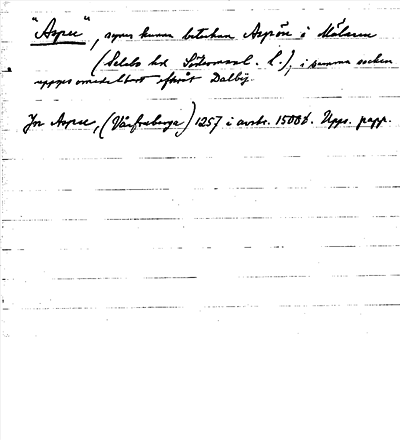 "Aspee", synes kunna beteckna Aspön i Mälaren
(Selebo hd Södermanl. l.), i samma socken
uppges omedelbart efteråt Dalby.
In Aspee, (Vårfruberga) 1257 i avskr. 1500 t. Upps. papp.